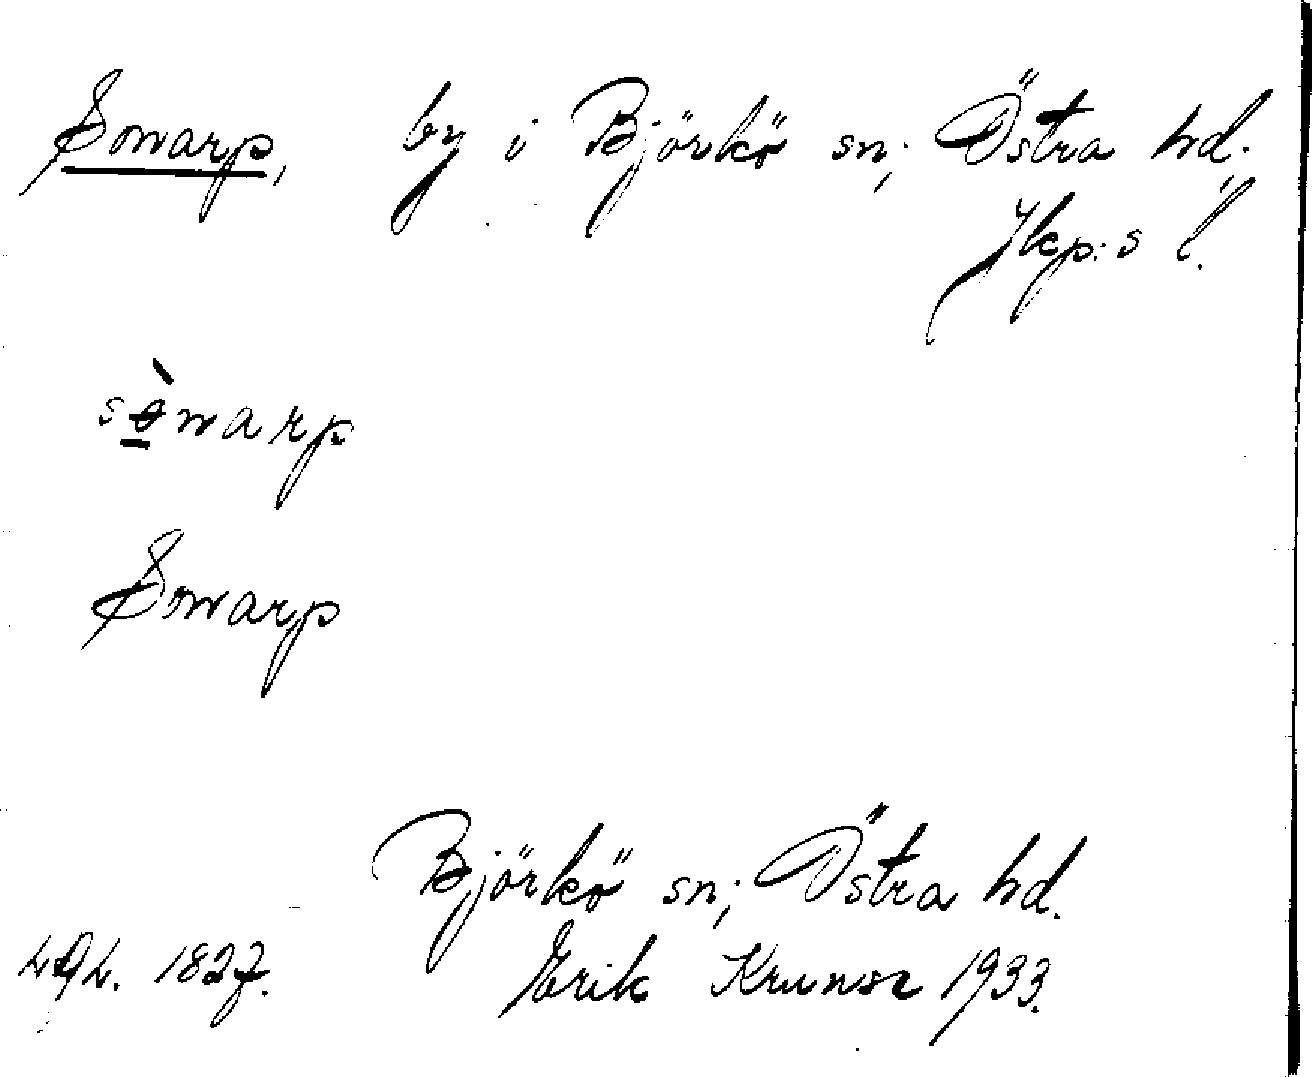 Sowarp, by i Björkö sn; Östra hd.
Jkp:s l.
sòwarp
Sowarp
Björkö sn; Östra hd.
1827. Erik 1933.